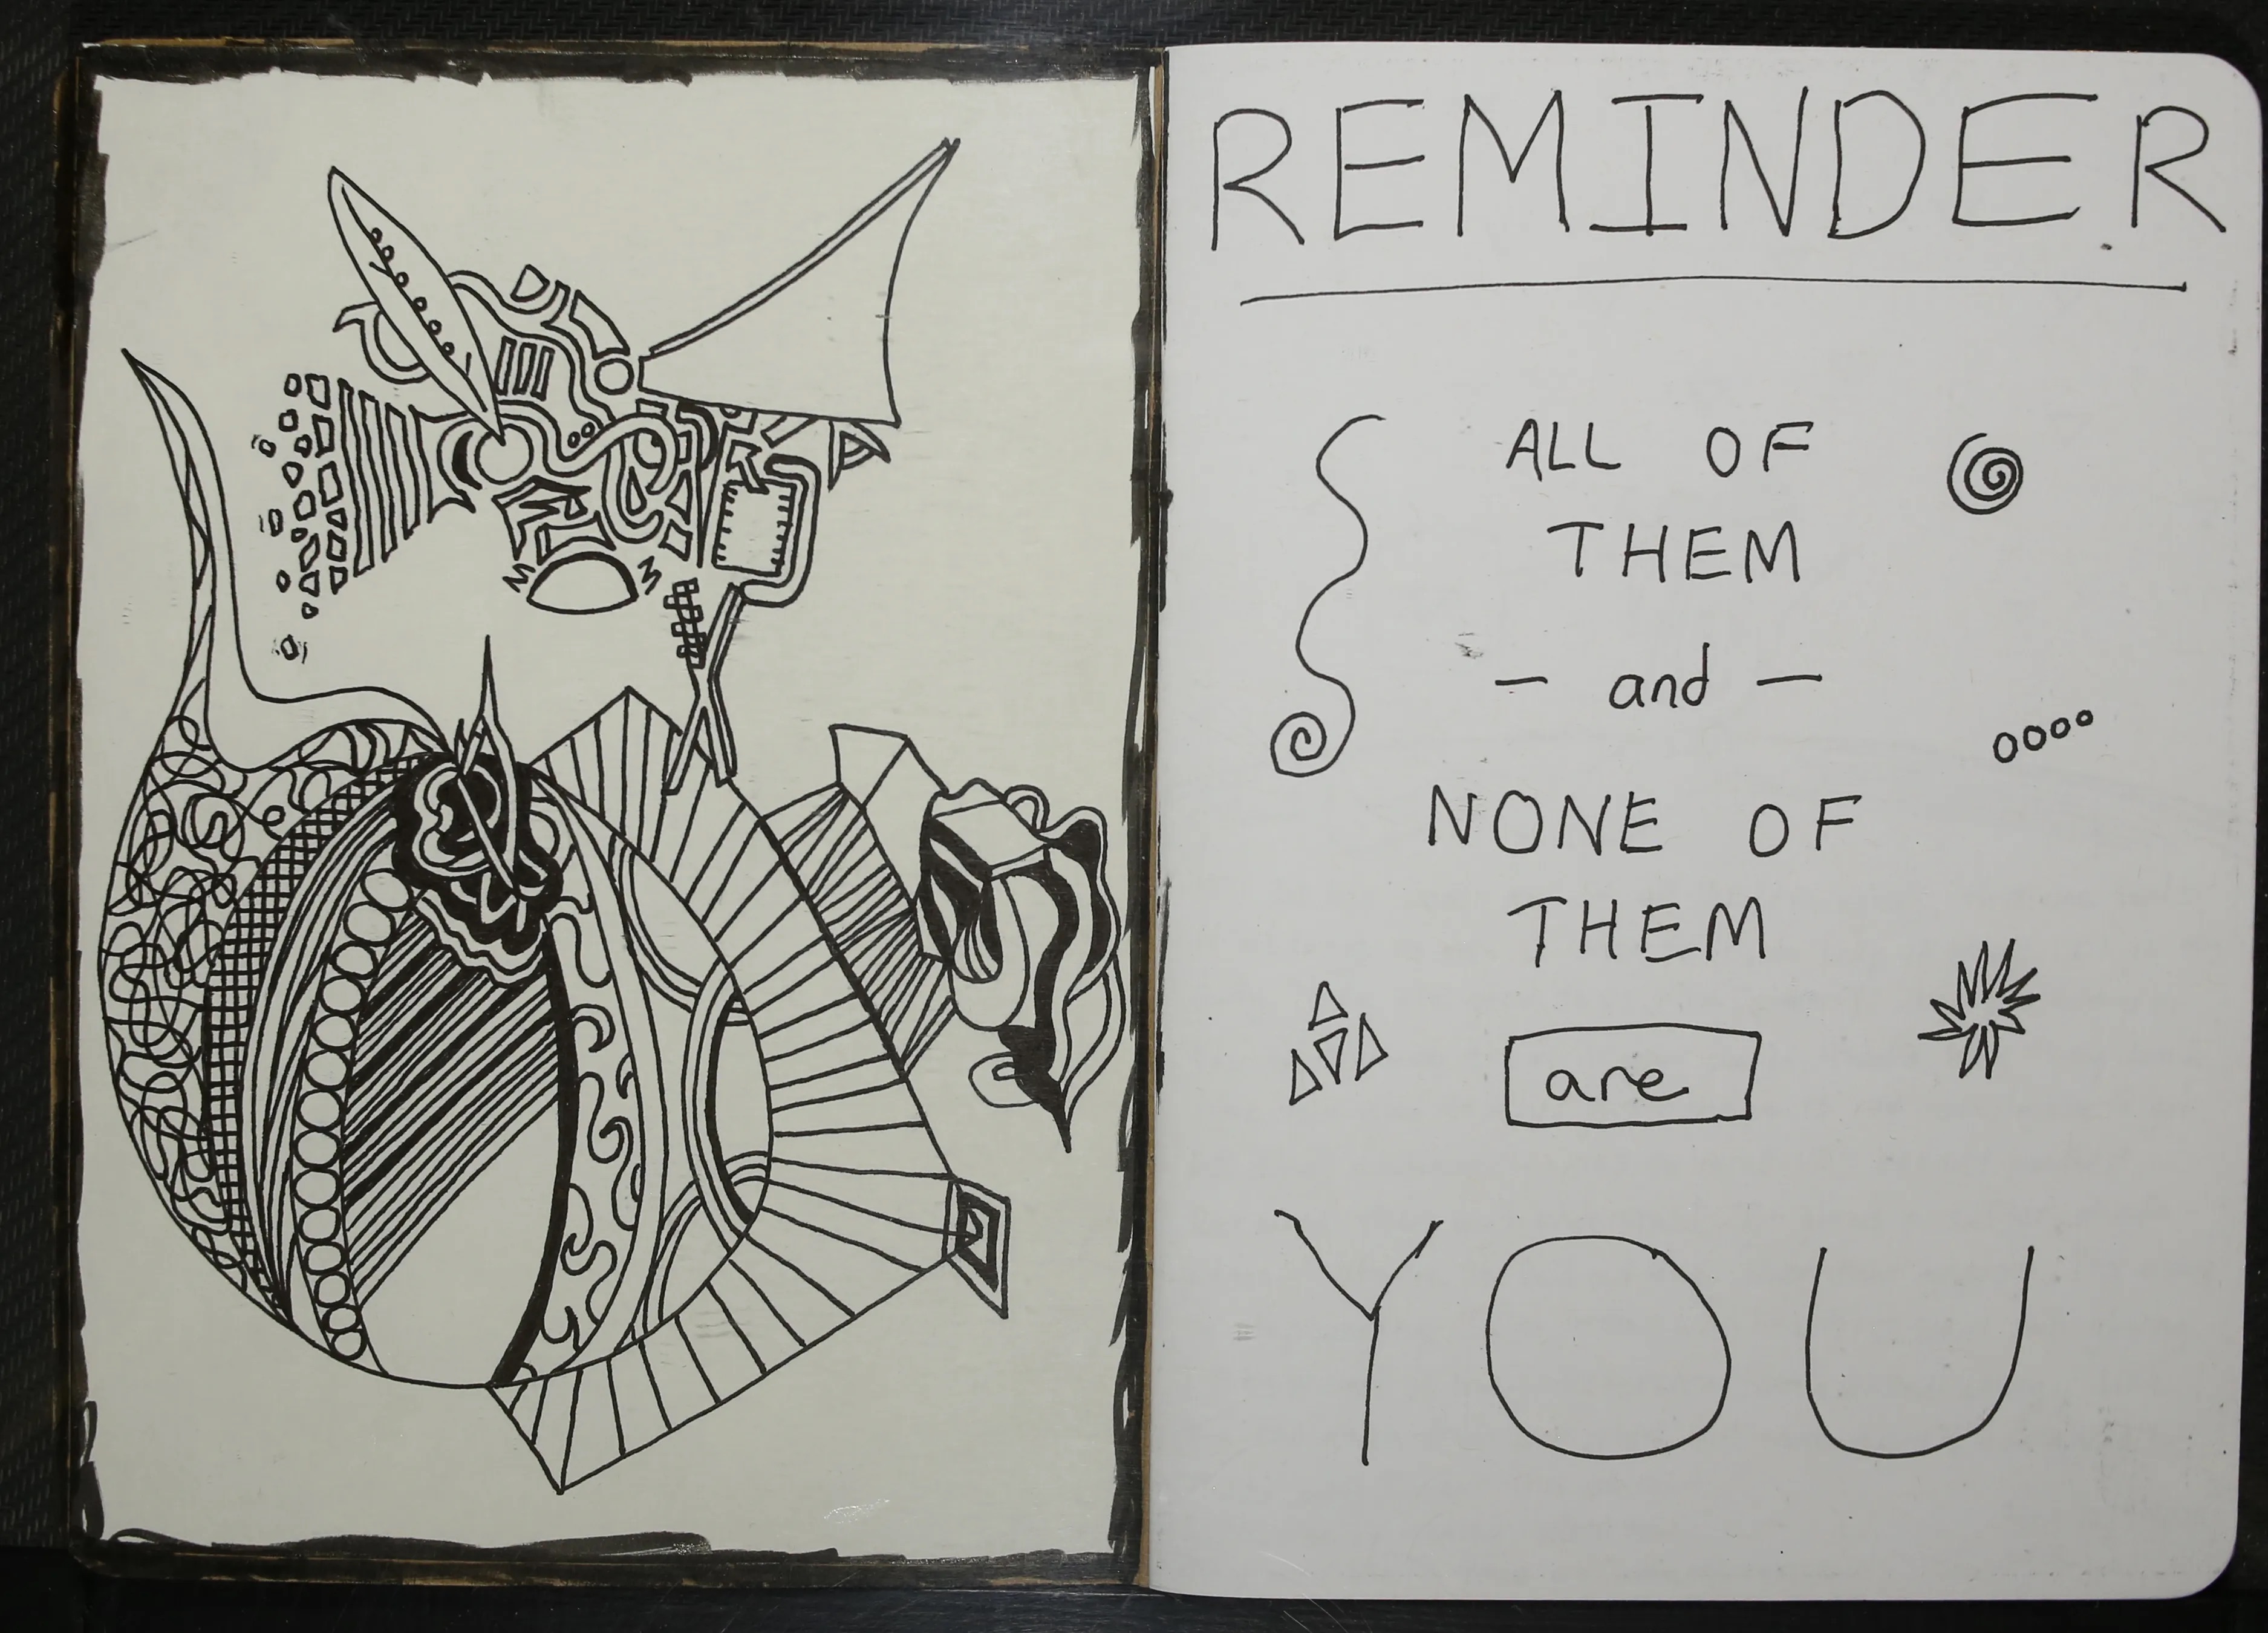 REMINDER
ALL OF
THEM
- and -
NONE OF
THEM
are
YOU